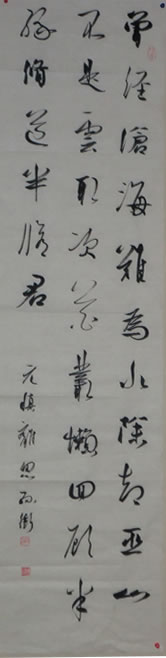 曾經滄海難為水除却巫山
不是雲取次花叢懶回顧半
緣脩道半緣君
元稹離思